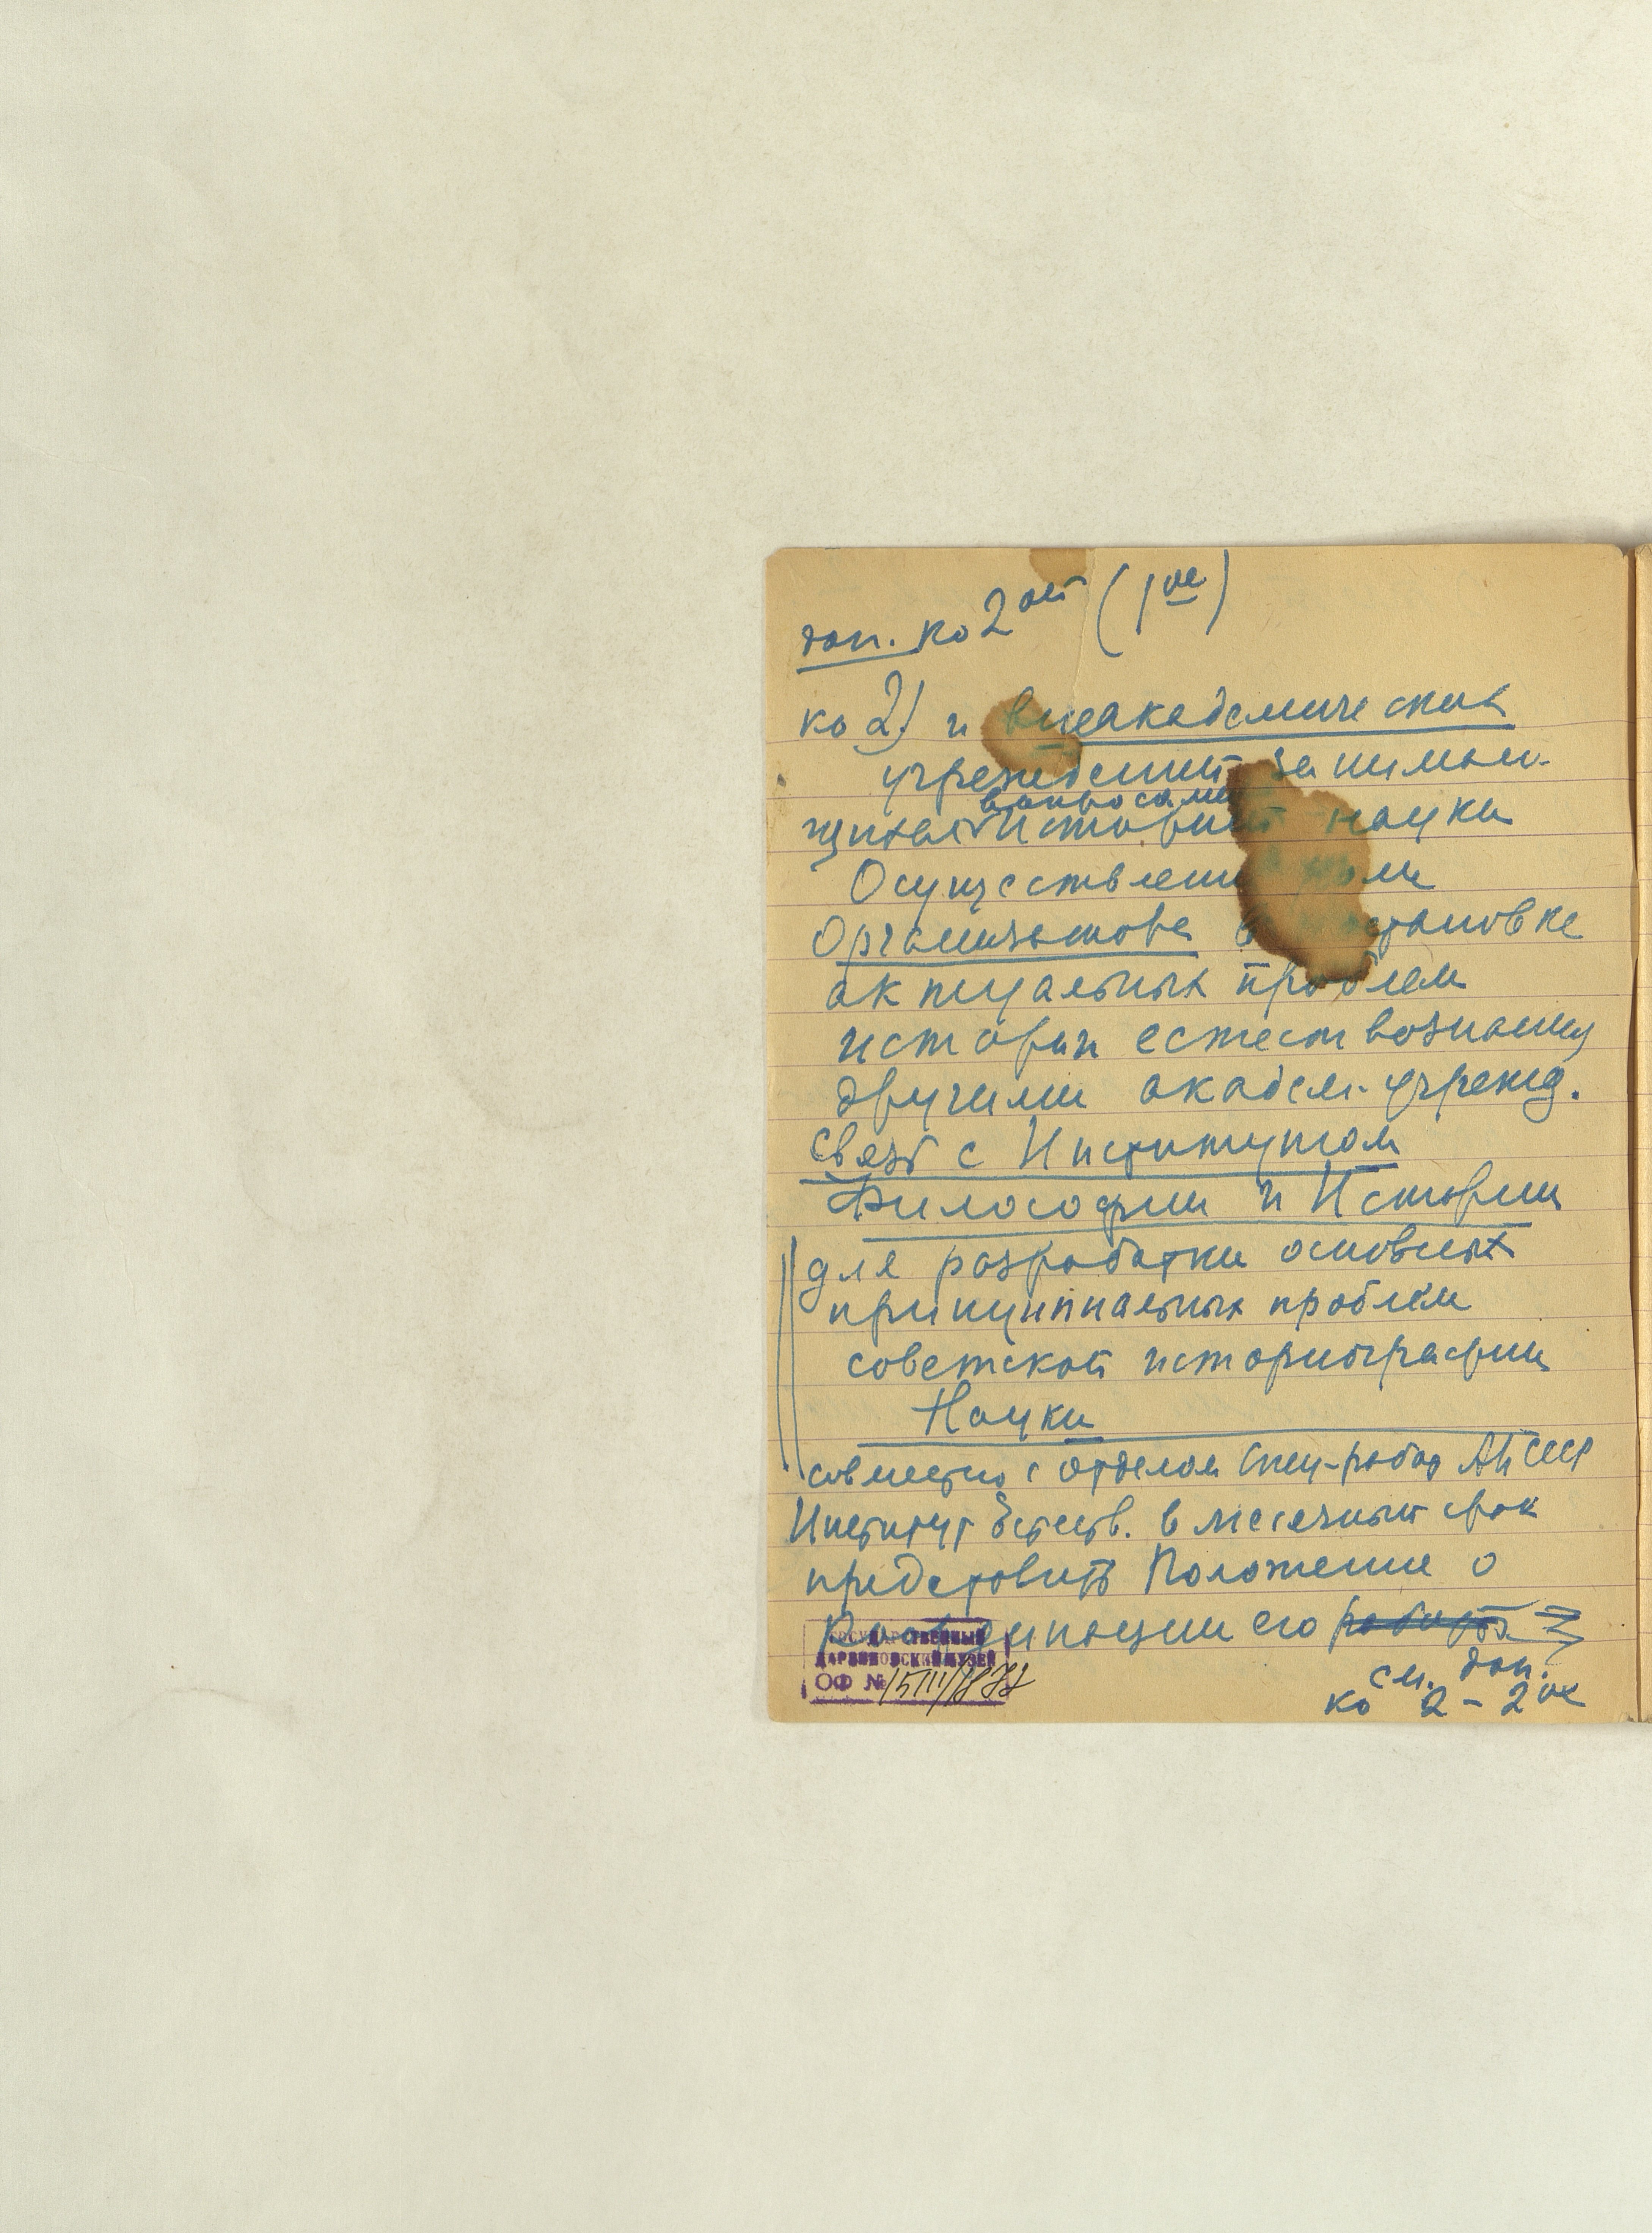 доп. ко 2ой (1ое)
ко 2) и внеакадемических
учреждений занимаю-
вопросами
щихся историей науки
Осуществление роли
Организатора в постановке
актуальных проблем
истории естествознания
другими академ. учрежд.
Связь с Институтом
Философии и Истории
для разработки основных
принципиальных проблем
советской историографии
Науки
совместно с отделом Спец-работ АН СССР
Институт Естеств. в месячный срок
представить Положение о
Координации его работы
см. доп.
ко 2 - 2ое
ГОСУДАРСТВЕННЫЙ
ДАРВИНОВСКИЙ МУЗЕЙ
ОФ №